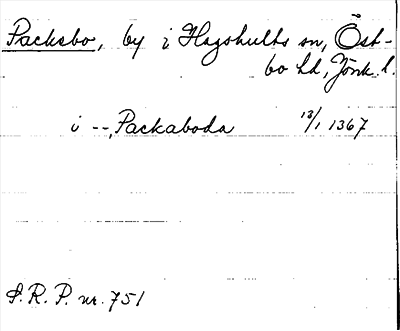 Packsbo, by i Hagshults sn, Öst-
bo hd, Jönk. l.
i --, Packaboda 13/1 1367
S. R. P. nr. 751